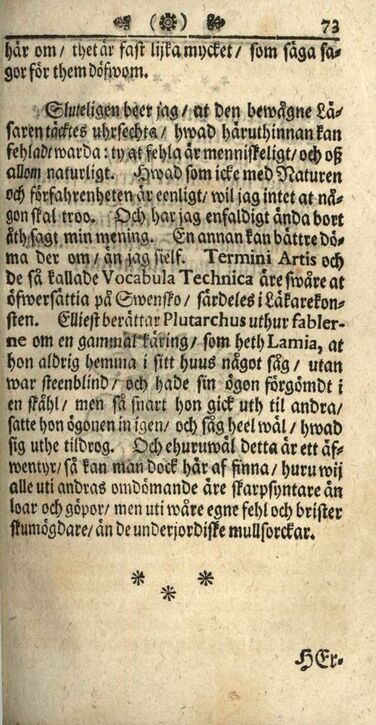 73
här om / thet är fast lijka mycket / som säga sa-
gor för them döfwom.
Sluteligen beer jag / at den bewågne Lä-
saren täcktes uhrsechta / hwad häruthinnan kan
fehladt warda: ty at fehla är menniskeligt / och oß
allom naturligt. Hwad som icke med Naturen
och förfahrenheten är eenligt / wil jag intet at nå-
gon skal troo. Och har jag enfaldigt ända bort
åth sagt min mening. En annan kan bättre dö-
ma der om / än jag sielf. Termini Artis och
de så kallade Vocabula Technica äre swåre at
öfwersättia på Swensko / särdeles i Läkarekon-
sten. Elliest berättar Plutarchus uthur fabler-
ne om en gammal käring / som heth Lamia, at
hon aldrig hemma i sitt huus något såg / utan
war steenblind / och hade sin ögon förgömdt i
en skåhl / men så snart hon gick uth til andra /
satte hon ögonen in igen / och såg heel wäl / hwad
sig uthe tildrog. Och ehuruwäl detta är ett äf-
wentyr / så kan man dock här af finna / huru wij
alle uti andras omdömande äre skarpsyntare än
loar och göpor / men uti wåre egne fehl och brister
skumögdare / än de underjordiske mullsorckar.
* * *
HEr-